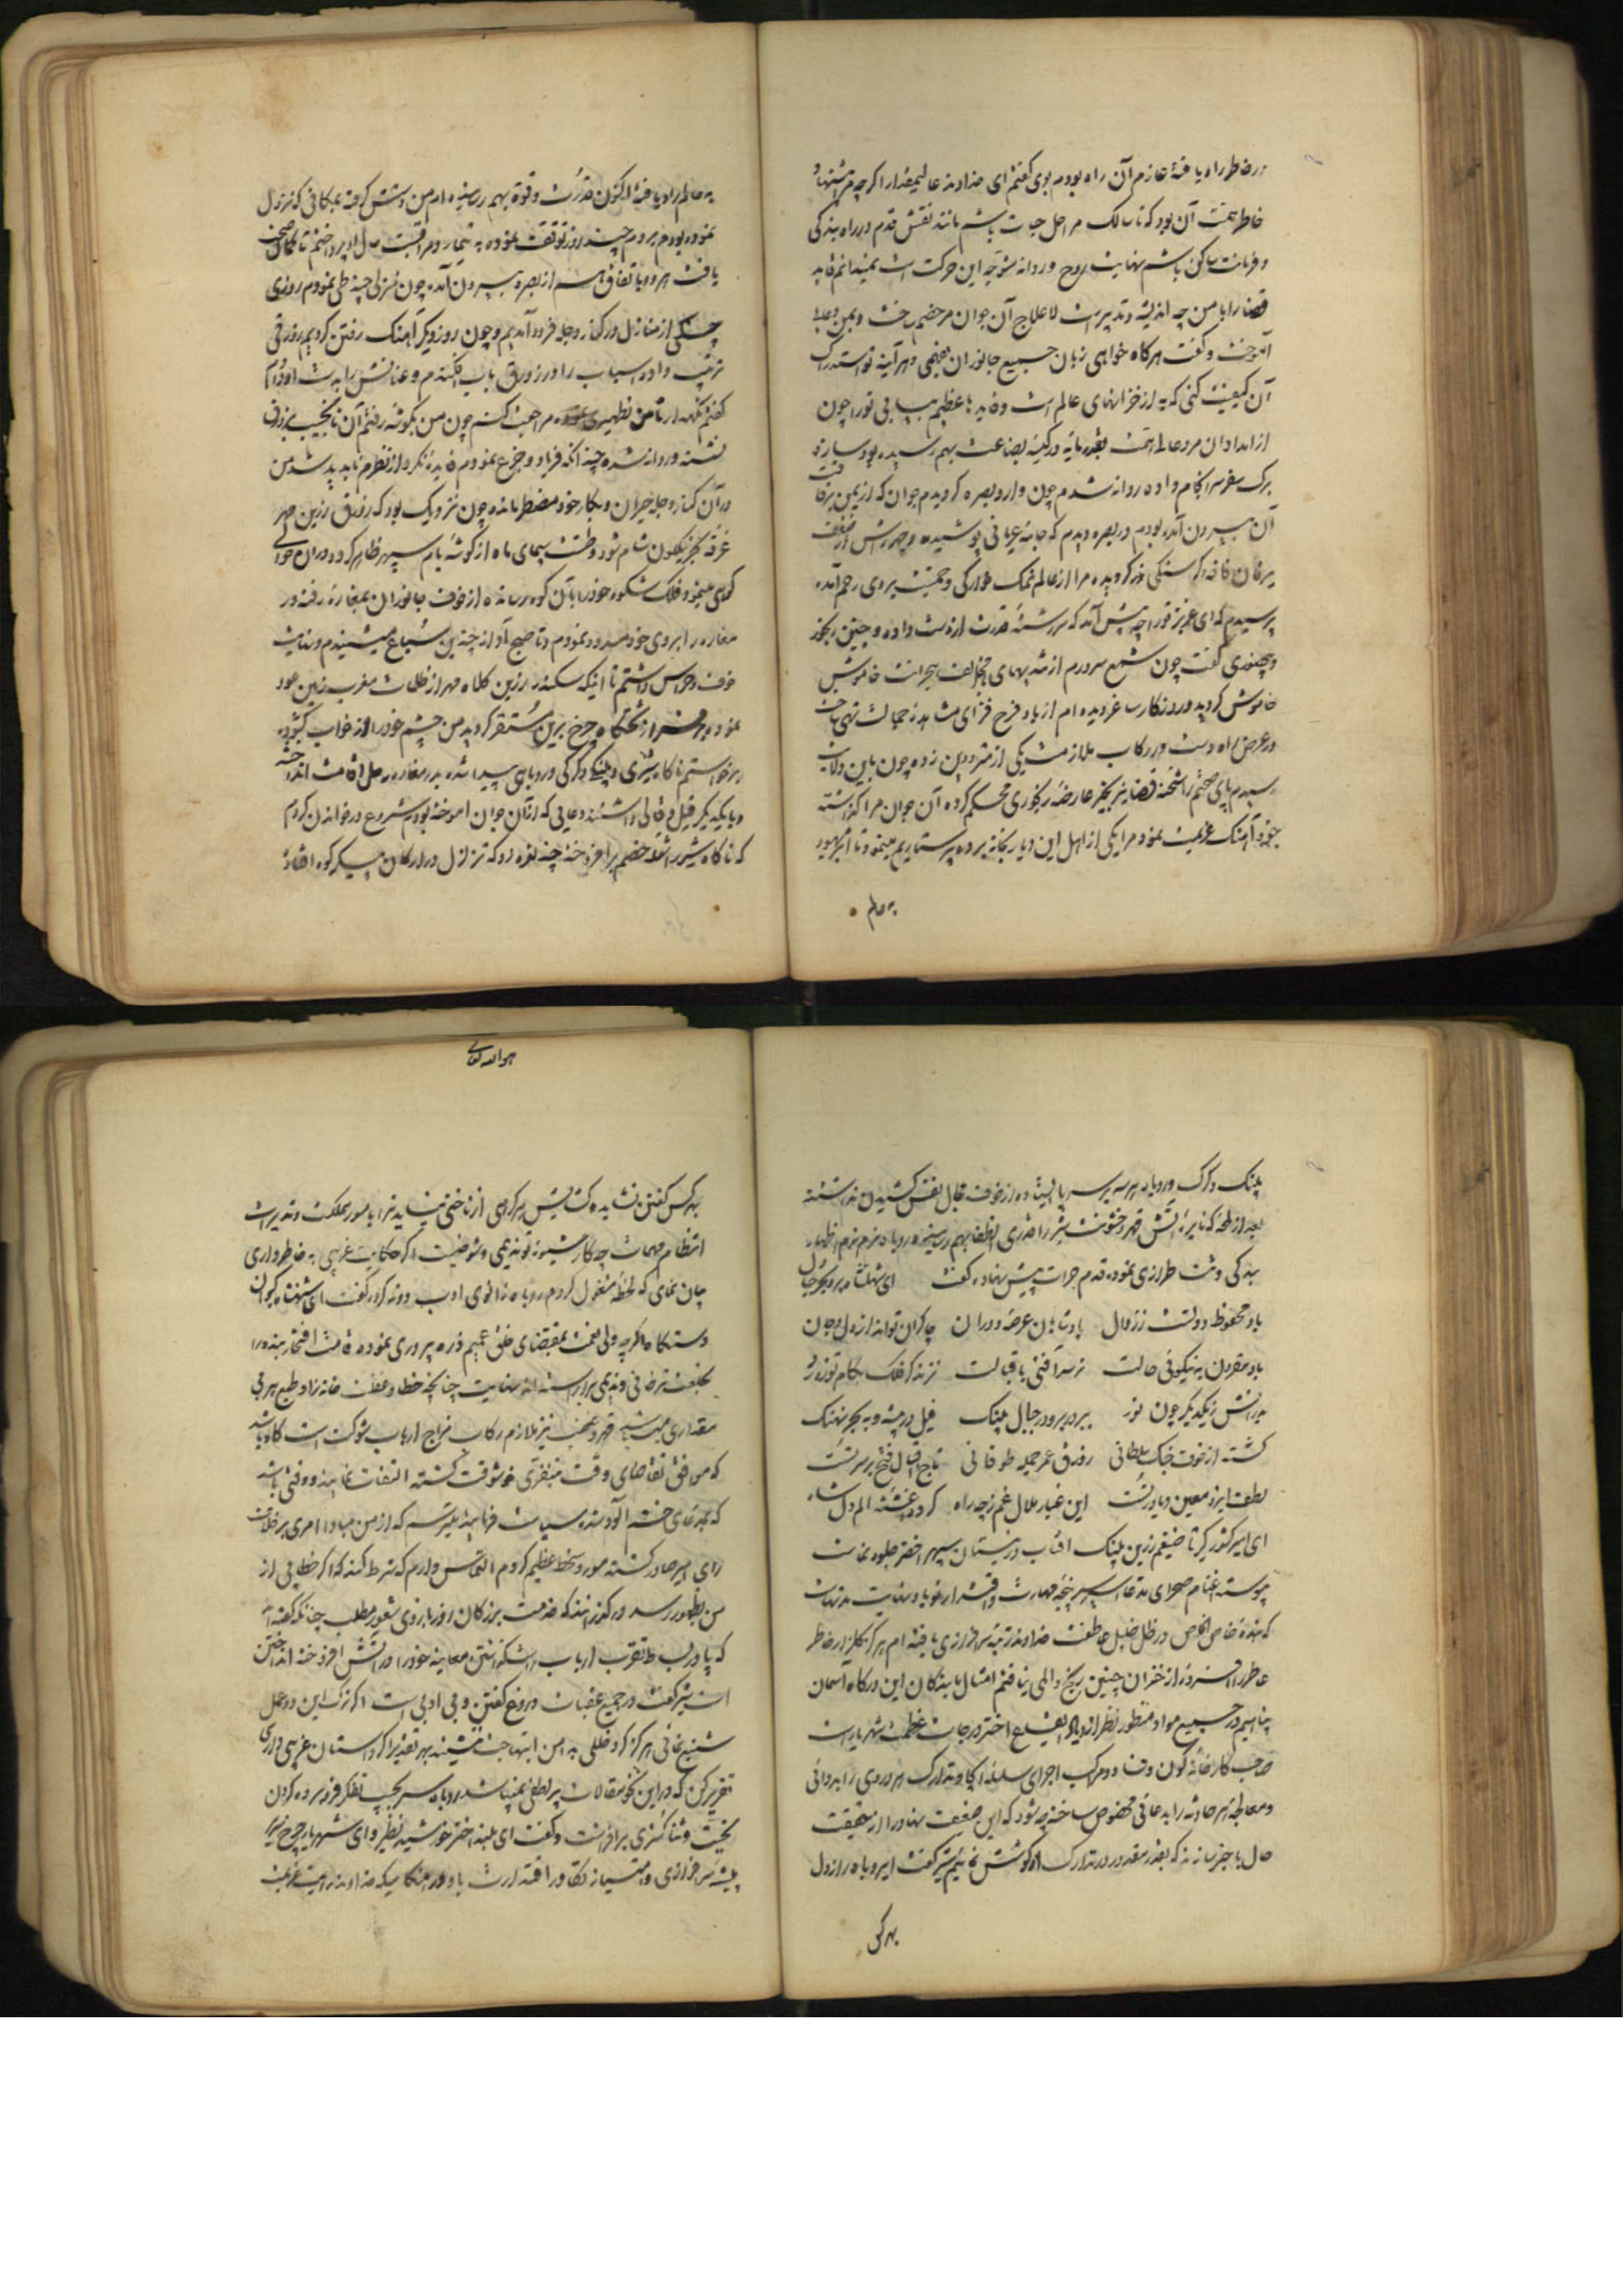 در خاطر راه یافته عازم آن راه بودم بوی گفتم ای خداوند عالیمقدار اگر چه
خاطر همت آن بود که تا سالک مراحل حیات باشم مانند نقش قدم در راه بندگی
و فرمانت ساکن باشم نهایت روح و روانم متوجه این حرکت است نمیدانم قاید
قضا را با من چه اندیشه و تدبیر است لاعلاج آن جوان مرخصم ساخت و بمن دعایی
آموخت و گفت هرگاه خواهی زبان جمیع جانوران بفهمی و هر آینه تو استدراک
آن کیفیت کنی که به از خزانهای عالم است و فایده عظیم بیابی تو را چون
از امداد آن مرد عالی همت بقدر مایه در کیسه بضاعت بهم رسیده بود ساز و
برک سفر سرانجام داده روانه شدم چون وارد بصره گردیدم جوان که از یمن برفاقت
آن بیرون آمده بودم در بصره دیدم که جامه عریانی پوشیده و چهره اش از ضعف
یرقان فاقه و گرسنگی زرد گردیده مرا از عالم نمک خوارگی و حمیت بروی رحم آمده
پرسیدم که ای عزیز تو را چه پیش آمد که سررشته قدرت از دست داده و چنین رنجور
گفت چون شمع سرورم از تندبادهای مخالف هجرانت خاموش
خاموش گردید و روزگار ساغر دیده ام از باده فرح فزای مشاهده جمالت تهی ساخت
در عرض راه دست در رکاب ملازمت یکی از مترددین زده چون باین ولایت
رسیدم پای صحتم را شحنه قضا بزنجیر عارضه رنجوری محکم کرده آن جوان مرا گذاشته
خود آهنک عزیمت نمود مرا یکی از اهل این دیار بخانه برده پرستاریم مینمود تا آنکه بهبود
به عالم
به عالم راه یافته اکنون قدرت و قوة بهم رسیده ام من دستش گرفته بمکانی که نزول
نموده بودم بردم چند روز توقف نموده به تیمار و مراقبت حال او پرداختم تا کمال صحت
یافت هر دو باتفاق هم از بصره بیرون آمده چون منزلی چند طی نمودم روزی
از منازل در کنار دجله فرود آمدیم و چون روز دیگر آهنک رفتن کردیم زورقی
ترتیب داده اسباب را در زورق باب افکندم و عنانش را بدست او دادم
گفتم نگهدار تا من تطهیری مراجعت کنم چون من بگوشه رفتم آن نانجیب بزورق
نشسته و روانه شده چندانکه فریاد و جزع نمودم فایده نکرد از نظرم ناپدید شد من
در آن کنار دجله حیران و بکار خود مضطر مانده چون نزدیک بود که زورق زرین مهر
غرقه بحر نیلگون شام شود و طشت سیمای ماه از گوشه بام سپهر ظاهر گردد در آن حوالی
کوهی مینمود فلک شکوه خود را بآن کوه رسانده از خوف جانوران بمغاره رفته در
مغاره را بروی خود مسدود نمودم و تا صبح آواز چندین سباع میشنیدم و نهایت
خوف و هراس داشتم تا اینکه سکندر زرین کلاه مهر از ظلمات مغرب زمین عود
نموده بر تختگاه چرخ برین مستقر گردید من چشم خود را از خواب گشوده
برخواستم ناگاه شیری و پلنگ و گرگی و روباهی پیدا شده بدر مغاره رحل اقامت انداخته
و با یکدیگر قیل و قالی داشتند دعایی که از آن جوان آموخته بودم شروع در خواندن کردم
که ناگاه شیر را شعله خشم برافروخته چند نعره زد که تزلزل در ارکان پیکر کوه افتاد
پلنک و گرک و روباه هر سه بر سر پا ایستاده از خوف مجال نفس کشیدن نداشته
بعد از لمحه که نایره آتش قهر و خشونت شیر را قدری انطفا بهم رسیده روباه نرم نرم اظهار
بندگی و منت طرازی نموده قدم جرات پیش نهاده گفت ای شهنشاه بر و بحر و جبال
باد محفوظ دولتت ز زوال پادشاهان عرصه دوران چاکران تواند از دل و جان
باد مقرون به نیکوئی حالت نرسد آفتی باقبالت نزند گر فلک بکام تو دور
بدرانش ز یکدیگر چون ببر در بر و در جبال پلنک فیل در بیشه و به بحر نهنک
گشته از خوف جنک سلطانی زورق عمر جمله طوفانی تاج اقبال فتح بر سر تست
لطف ایزد معین و یاور تست این غبار ملال و غم ز چه راه گرد گشته الم دل شاه
ای امیر کشور گیر تا ضیغم زرین پلنک افتاب در نیستان سپهر اخضر جلوه نماست
پیوسته اغنام صحرای مدعا اسیر پنجه مهارت و اقتدار تو باد نهایت مدتهاست
که بنده خاص الخاص در ظل ظلیل عاطفت خداوند رتبه سرافرازی یافته ام هرگز گلزار خاطر
عاطر را افسرده از خزان چنین رنج و المی نیافتم امثال ما بندگان این درگاه آسمان
پناهیم در جمیع مواد منظور نظر ازدیاد ارتفاع اختر درجات عظمت شهریار است
صاحب کارخانه کون و فساد و مرکب اجرای سلسله ایجاد تدارک هر دردی را بدوائی
و معالجه هر حادثه را بدعائی مخصوص ساخته چه شود که این ضعیف نهاد را از حقیقت
حال با خبر سازند که بقدر مقدور در تدارک او کوشش نمایم شیر گفت ای روباه راز دل
بهر کس
هو الله تعالی
بهر کس گفتن نشاید هر گرهی از ناخنی نیاید ترا با امور مملکت و تدبیر است
انتظام مهمات چه کار شیوه تو ندیمی و شوخیست اگر حکایت غریبی به خاطر داری
بیان نمای که لحظه مشغول گردم روباه زانوی ادب دو ته کرد و گفت ای شهنشاه کیوان
دستگاه اگر چه ولی نعمت بمقتضای خلق عمیم ذره پروری نموده قامت افتخار بنده را
بخلعت ترخانی و ندیمی برآراسته اند نهایت چنانچه خطا و عطف خانه زاد طبع هر بی
مقداری میباشد قهر و غضب نیز ملازم رکاب مزاج ارباب شوکت است گاه باشد
که موافق تقاضای وقت بنفری خوشوقت گشته التفات نمایند و وقتی باشد
که بمدعای خشم آلود شده سیاست فرمایند میترسم که از من مبادا امری برخلاف
رای امیر صادر گشته مورد سخط عظیم گردم التماس دارم که شرط کنند که اگر خطایی از
من بظهور رسد درگذرانند که خدمت بزرگان روز بازوی شعور مطلب چنانکه گفته اند
که پا در بساط تقرب ارباب گذاشتن معاینه خود را در آتش افروخته انداختن
است شیر گفت در جمیع عقبات دروغ گفتن و بی ادبی است اگر ترک این دو عمل
شنیع نمائی هرگز گرد خللی به دامن ابتهاجت ننشیند بهر تقدیر اگر داستان غریبی داری
تقریر کن که در این نحو مقالات پر لطفی نمیباشد روباه سر بجیب تفکر فرو برده گردن
تحیت و ثنا گستری برافراشت و گفت ای بلند اختر خورشید نظیر و ای شهریار چرخ سریر
همیشه سرافرازی و امتیاز اقتدارت باد در هنگامیکه خداوند رایت عزیمت